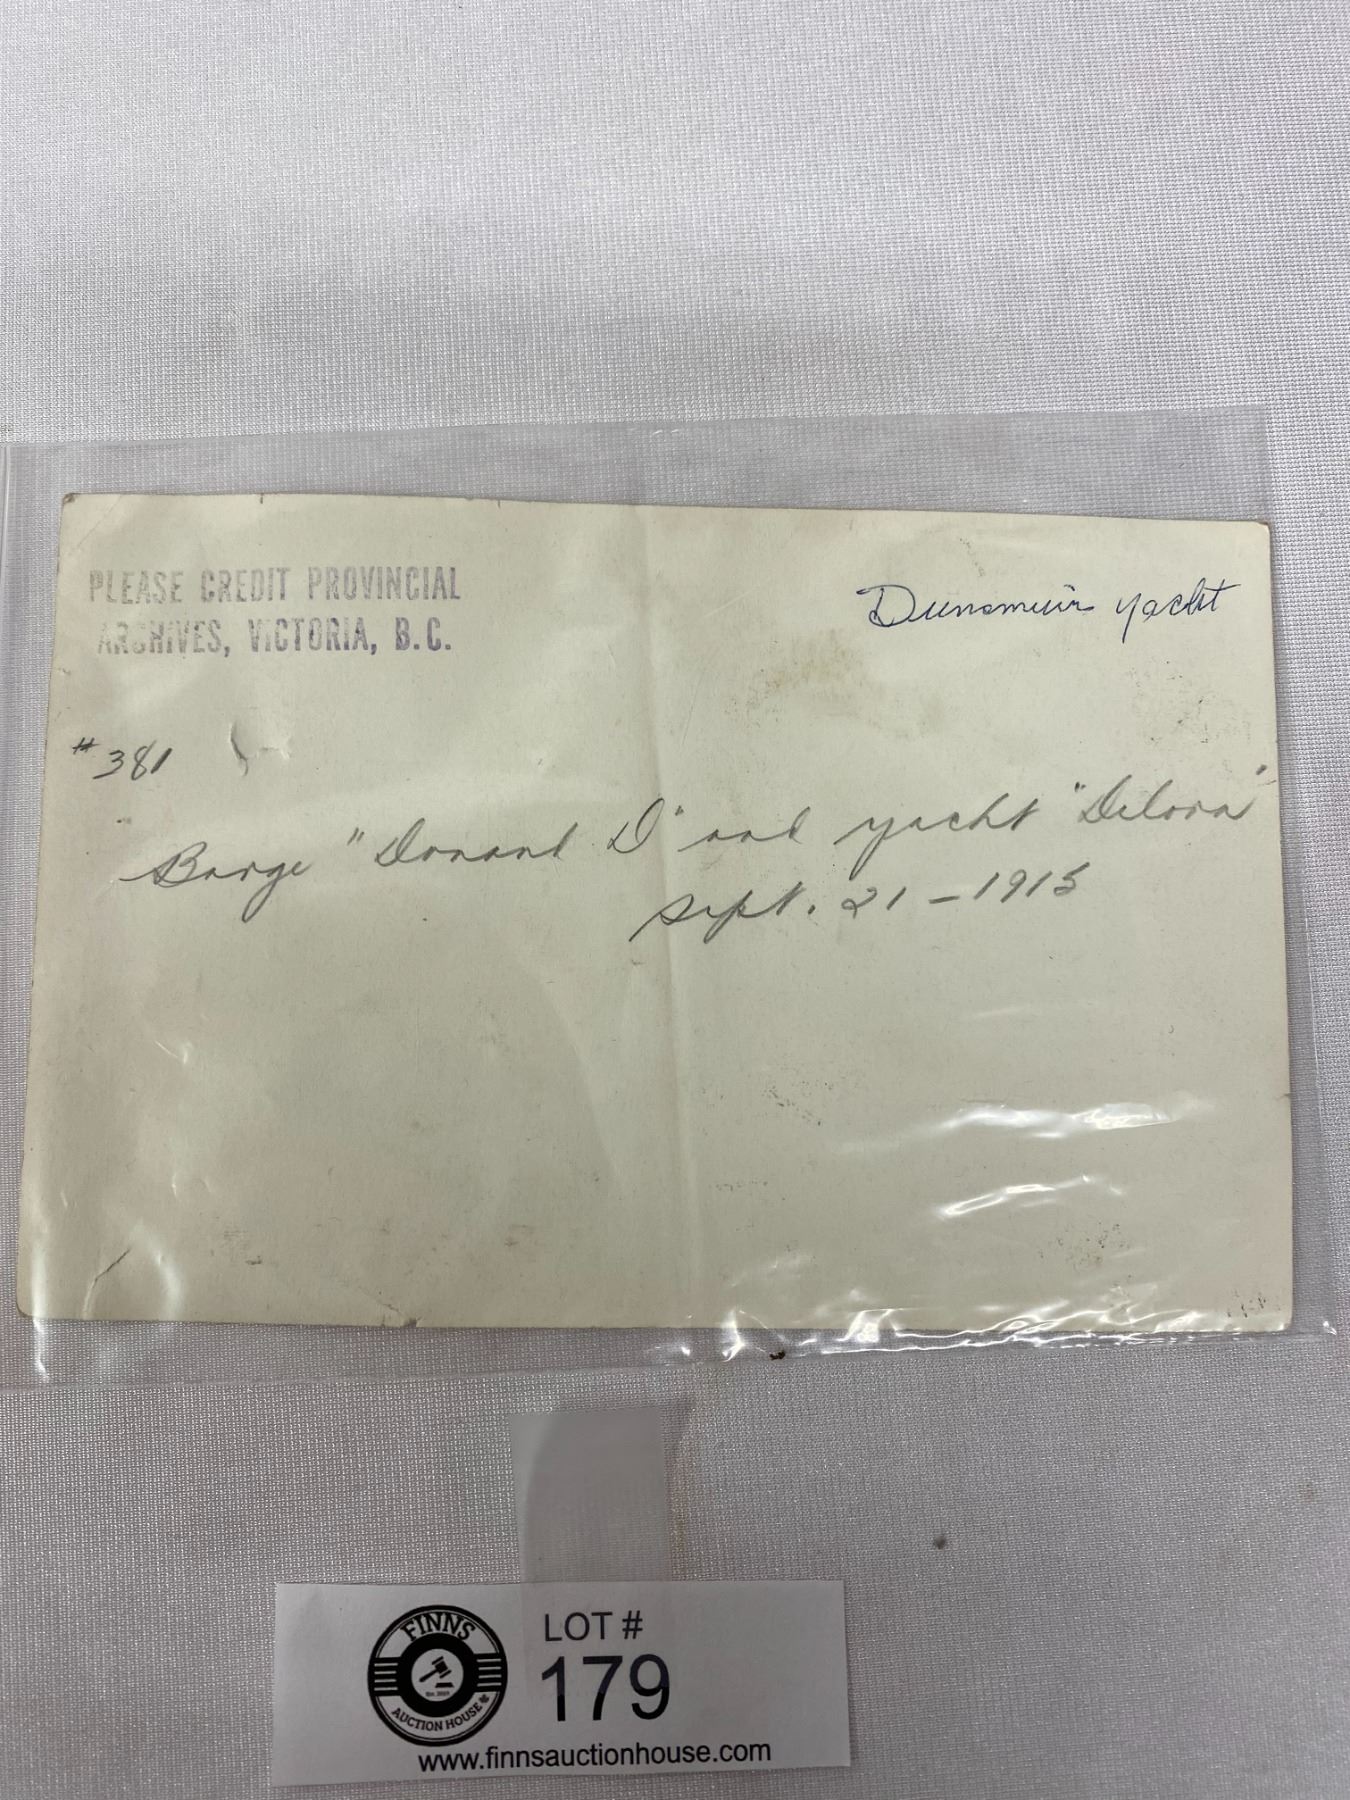 PLEASE CREDIT PROVINCIAL
ARCHIVES, VICTORIA, B.C.
Dunsmuir yacht
#381
Barge "Donant D" and yacht "Dolora"
Sept. 21 - 1915
FINNS
AUCTION HOUSE
LOT #
179
www.finnsauctionhouse.com